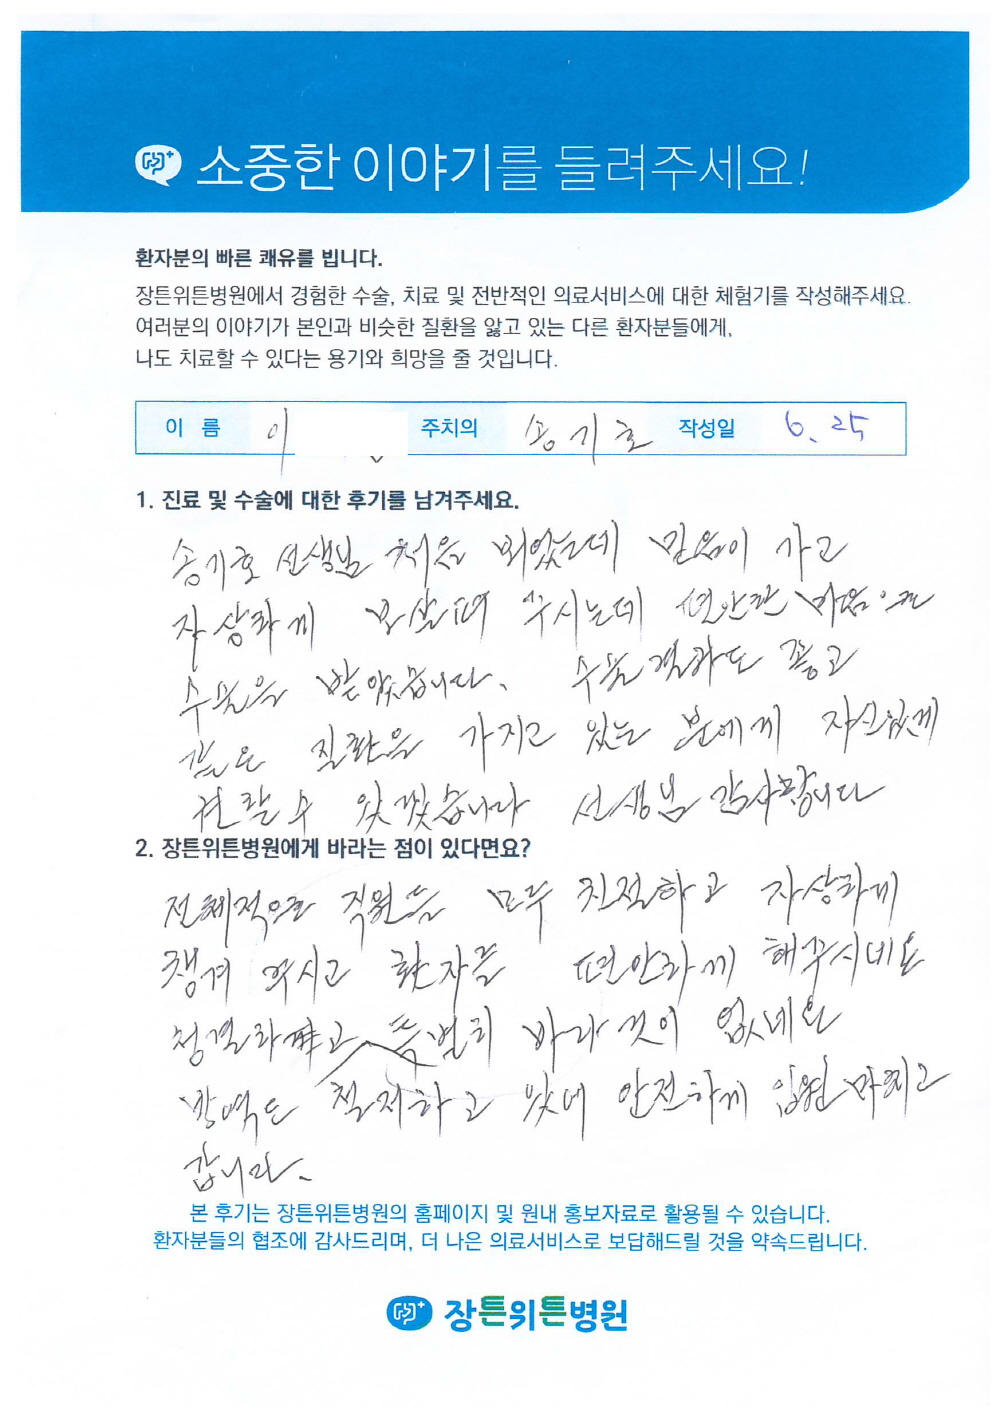 소중한 이야기를 들려주세요!
환자분의 빠른 쾌유를 빕니다.
장튼위튼병원에서 경험한 수술, 치료 및 전반적인 의료서비스에 대한 체험기를 작성해주세요.
여러분의 이야기가 본인과 비슷한 질환을 앓고 있는 다른 환자분들에게,
나도 치료할 수 있다는 용기와 희망을 줄 것입니다.
이 름 이 주치의 송기호 작성일 6. 25
1. 진료 및 수술에 대한 후기를 남겨주세요.
송기호 선생님 처음 뵈었는데 믿음이 가고
자상하게 보살펴 주시는데 편안한 마음으로
수술을 받았습니다. 수술결과도 좋고
같은 질환을 가지고 있는 분에게 자신있게
권할수 있겠습니다 선생님 감사합니다
2. 장튼위튼병원에게 바라는 점이 있다면요?
전체적으로 직원들 모두 친절하고 자상하게
챙겨 주시고 환자들 편안하게 해주시네요
청결하고 특별히 바라 것이 없네요
방역도 철저하고 안전하게 입원 마치고
갑니다.
본 후기는 장튼위튼병원의 홈페이지 및 원내 홍보자료로 활용될 수 있습니다.
환자분들의 협조에 감사드리며, 더 나은 의료서비스로 보답해드릴 것을 약속드립니다.
장튼위튼병원